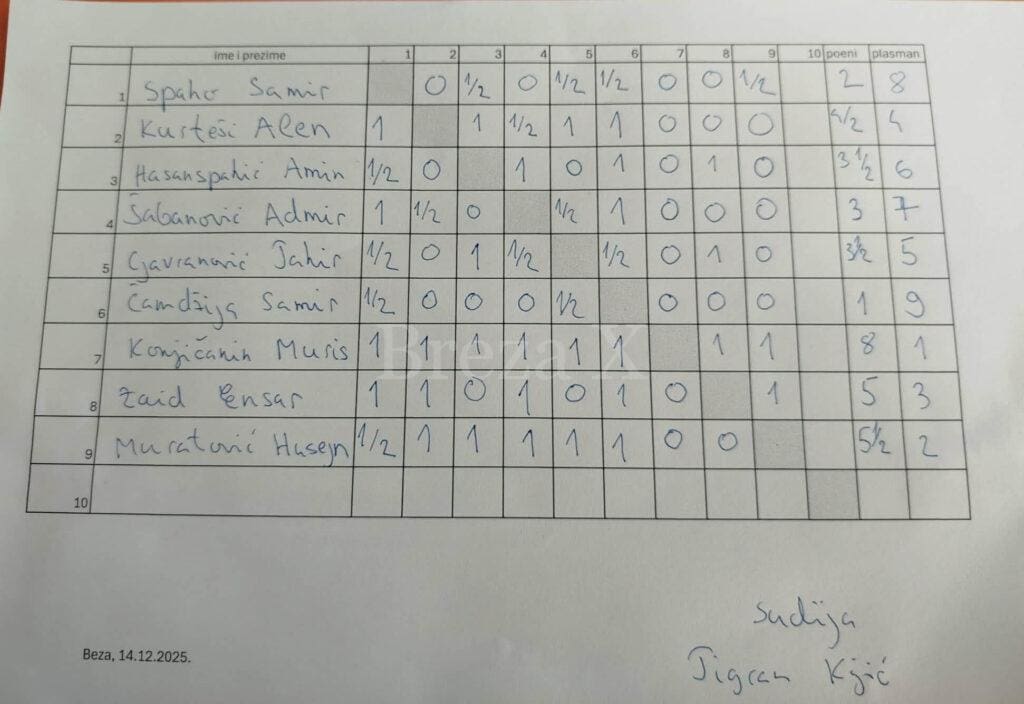 ime i prezime 1 2 3 4 5 6 7 8 9 10 poeni plasman
1 Spaho Samir 0 1/2 0 1/2 1/2 0 0 1/2 2 8
2 Kurteši Alen 1 1 1/2 1 1 0 0 0 4/2 4
3 Hasanspahić Amin 1/2 0 1 0 1 0 1 0 3 1/2 6
4 Šabanović Admir 1 1/2 0 1/2 1 0 0 0 3 7
5 Gavranović Tahir 1/2 0 1 1/2 1/2 0 1 0 3 1/2 5
6 Čamdžija Samir 1/2 0 0 0 1/2 0 0 0 1 9
7 Konjičanin Muris 1 1 1 1 1 1 1 1 8 1
8 Zaid Ensar 1 1 0 1 0 1 0 1 5 3
9 Muratović Husejn 1/2 1 1 1 1 1 0 0 5 1/2 2
10
Breza X
Sudija
Beza, 14.12.2025.
Tigran